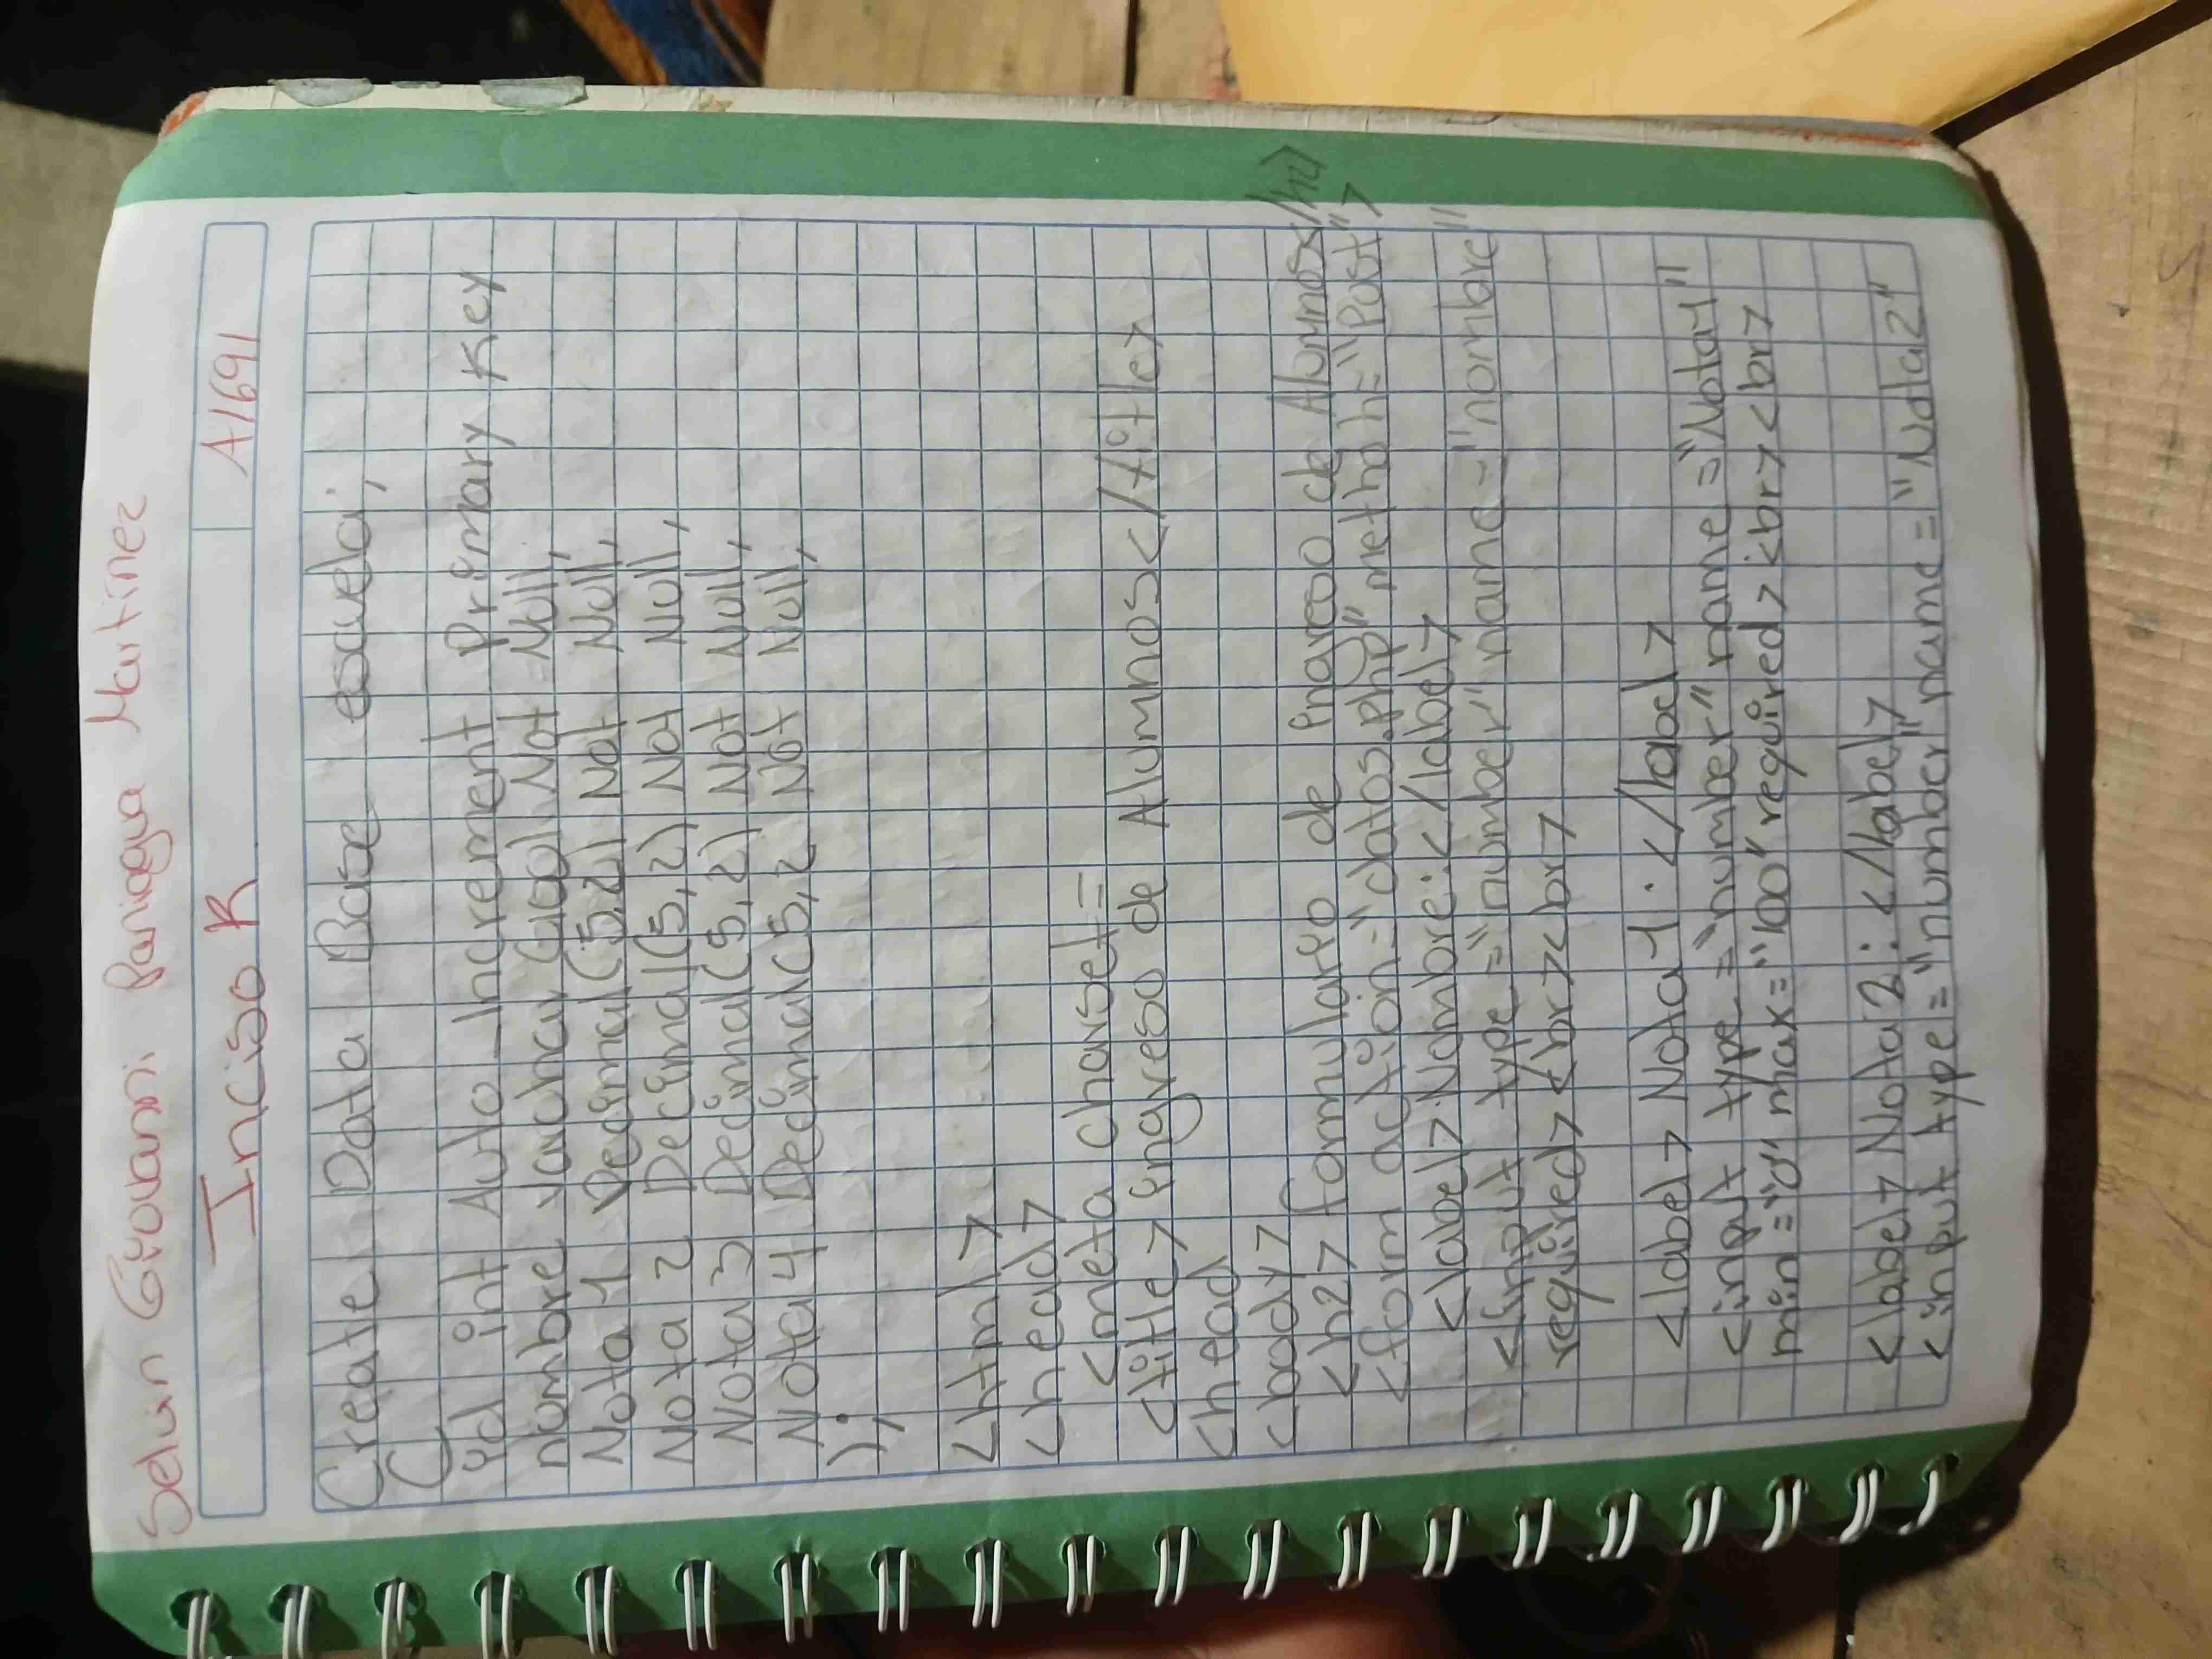 Selvin Giovanni Paniagua Martinez
Inciso R A1691
Create Data Base escuela;
(
id int Auto_Increment Primary Key
nombre varchar (100) Not Null,
Nota 1 Decimal(5,2) Not Null,
Nota 2 Decimal(5,2) Not Null,
Nota 3 Decimal(5,2) Not Null,
Nota 4 Decimal(5,2 Not Null,
);
<html>
<head>
<meta charset=
<title> ingreso de Alumnos</title>
<head
<body>
<h2> formulario de ingreso de Alumnos</h2>
<form action="datos.php" methoh="Post">
<label>Nombre:</label>
<input type="number" name="nombre"
required> <br><br>
<label> Nota 1:</label>
<input type="number" name="Nota1"
min="0" max="100" required> <br><br>
<label> Nota 2: </label>
<input type="number" name="Nota2"